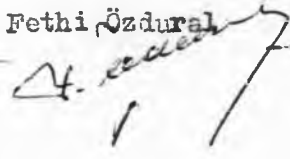 Fethi Özdural